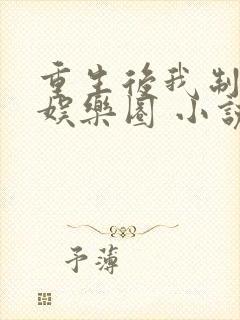 重生後我制
娛樂圈 小說
予薄